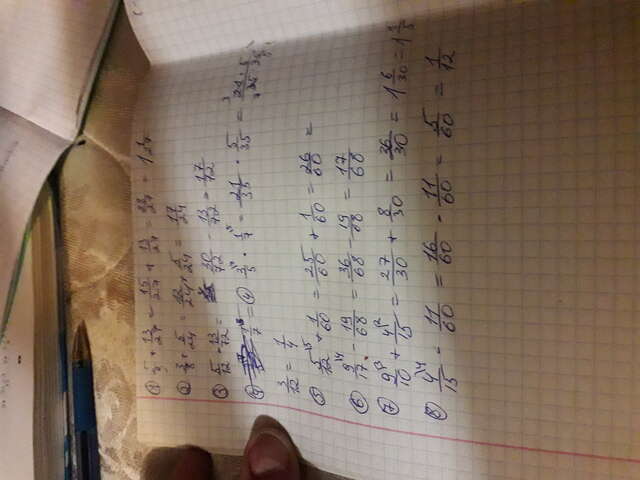 ① 5/9 + 13/27 = 15/27 + 13/27 = 28/27 = 1 1/27
② 3/8 + 5/24 = 12/24 + 5/24 = 17/24
③ 5/12 - 13/72 = 30/72 - 13/72 = 17/72
④ 3/5 · 1/7 = 21/35 · 5/35 =
3/12 = 1/4
⑤ 5/12 + 1/60 = 25/60 + 1/60 = 26/60 =
⑥ 9/17 - 19/68 = 36/68 - 19/68 = 17/68
⑦ 9/10 + 4/15 = 27/30 + 8/30 = 36/30 = 1 6/30 = 1 1/5
⑧ 4/15 - 11/60 = 16/60 - 11/60 = 5/60 = 1/12